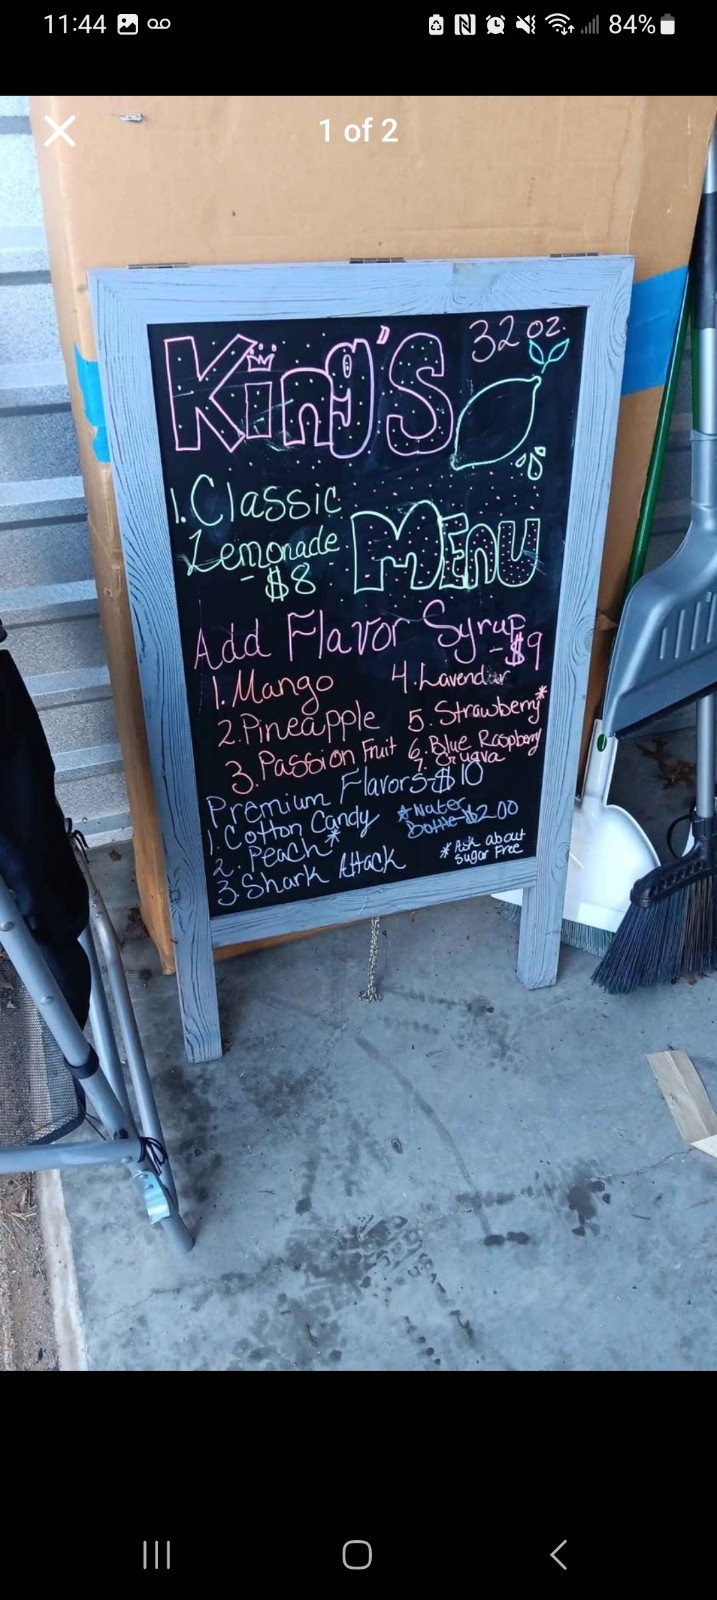 11:44
84%
1 of 2
King's
32 oz.
1. Classic
Lemonade
- $8
Menu
Add Flavor Syrup
- $9
1. Mango
2. Pineapple
3. Passion Fruit
4. Lavender
5. Strawberry*
6. Blue Raspberry
7. Guava
Premium Flavors-$10
1. Cotton Candy
2. Peach*
3. Shark Attack
*Water
Bottle-$2.00
*Ask about
Sugar Free